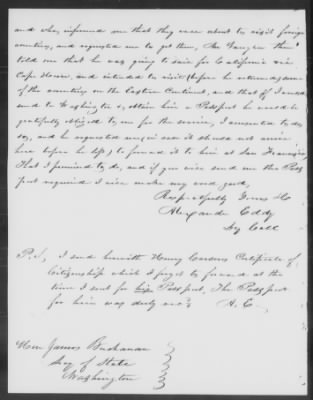 and who, informed me that they were about to visit foreign
countries, and requested me to get them, Mr Sawyer then
told me that he was going to sail for California via
Cape Horn, and intended to visit before he returned some
of the countries on the Eastern Continent, and that if I would
send to Washington & obtain him a Passport he would be
gratefully obliged to me for the service, I consented to do
so, and he requested me in case it should not arrive
here before he left, to forward it to him at San Francisco,
That I promised to do, and if you will send me the Pass
port required I will make my word good,
Respectfully Yours &c
Alexander Eddy
P.S, I send herewith Henry Certificate of
Citizenship which I forgot to forward at the
time I sent for his Passport, The Passport
for him was duly rec'd, A. E.
Hon James Buchanan
Secy of State
Washington